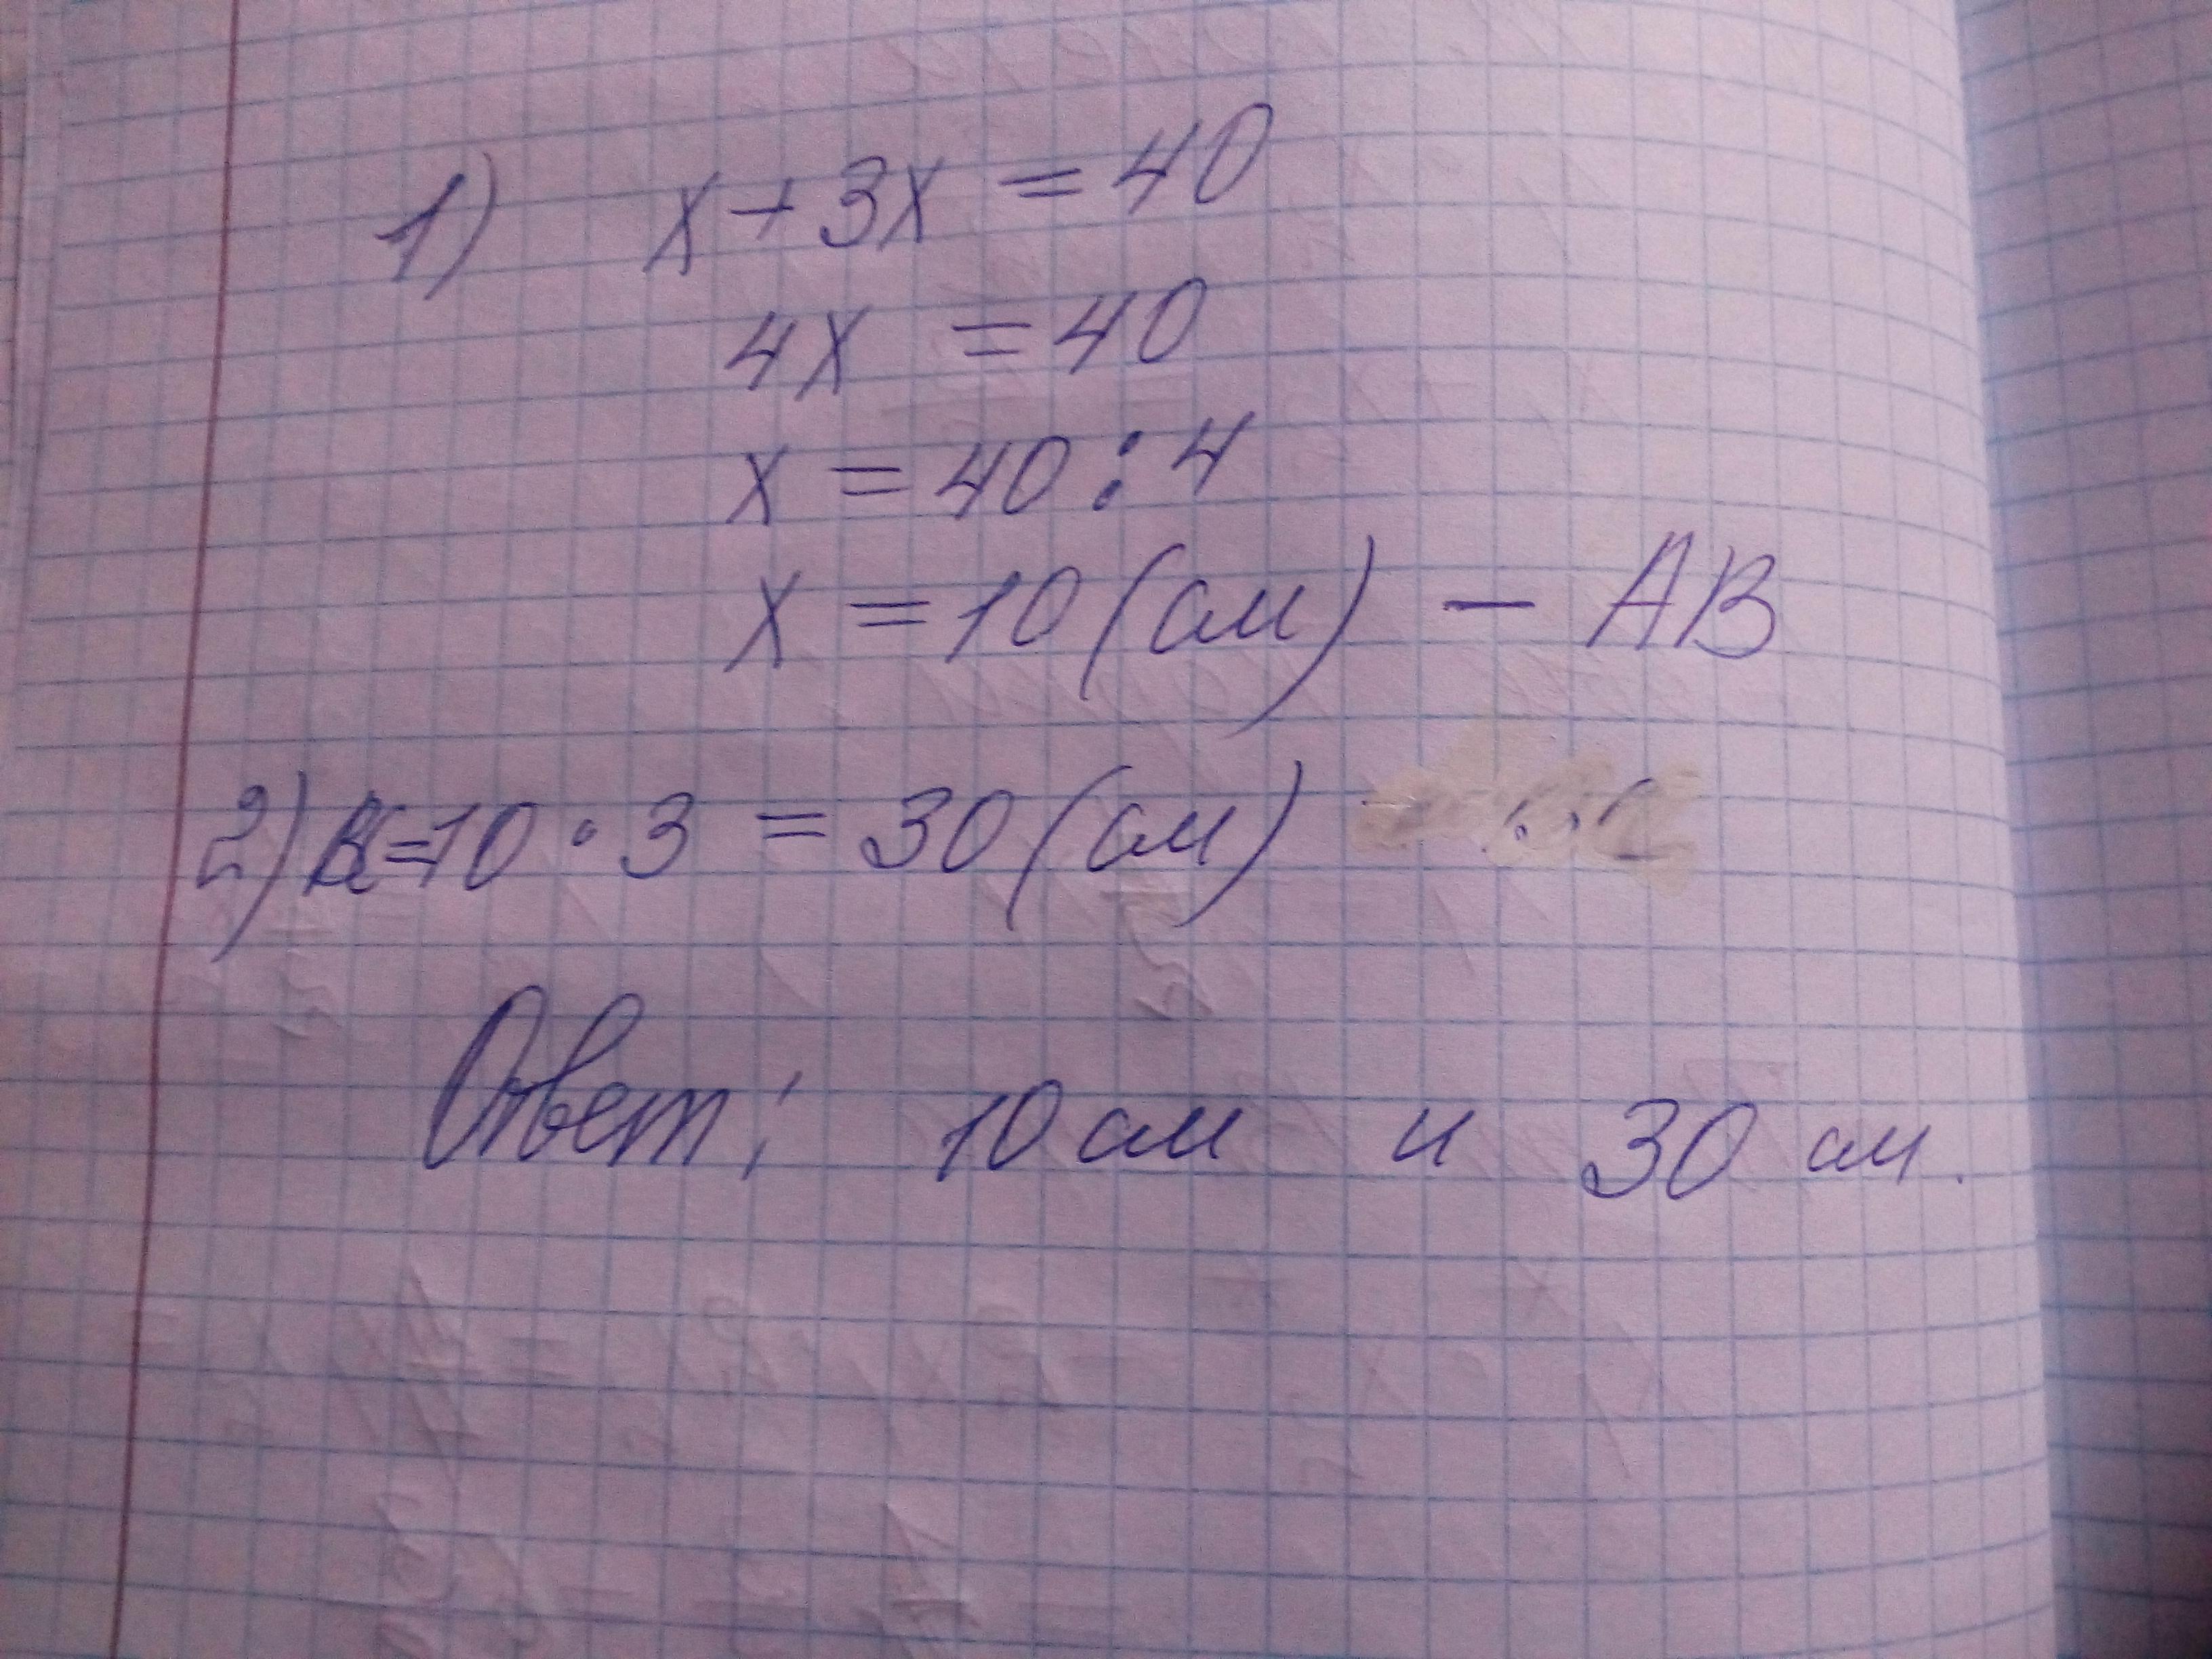 1) x + 3x = 40
4x = 40
x = 40 : 4
x = 10 (см) — АВ
2) ВС = 10 · 3 = 30 (см)
Ответ: 10 см и 30 см.